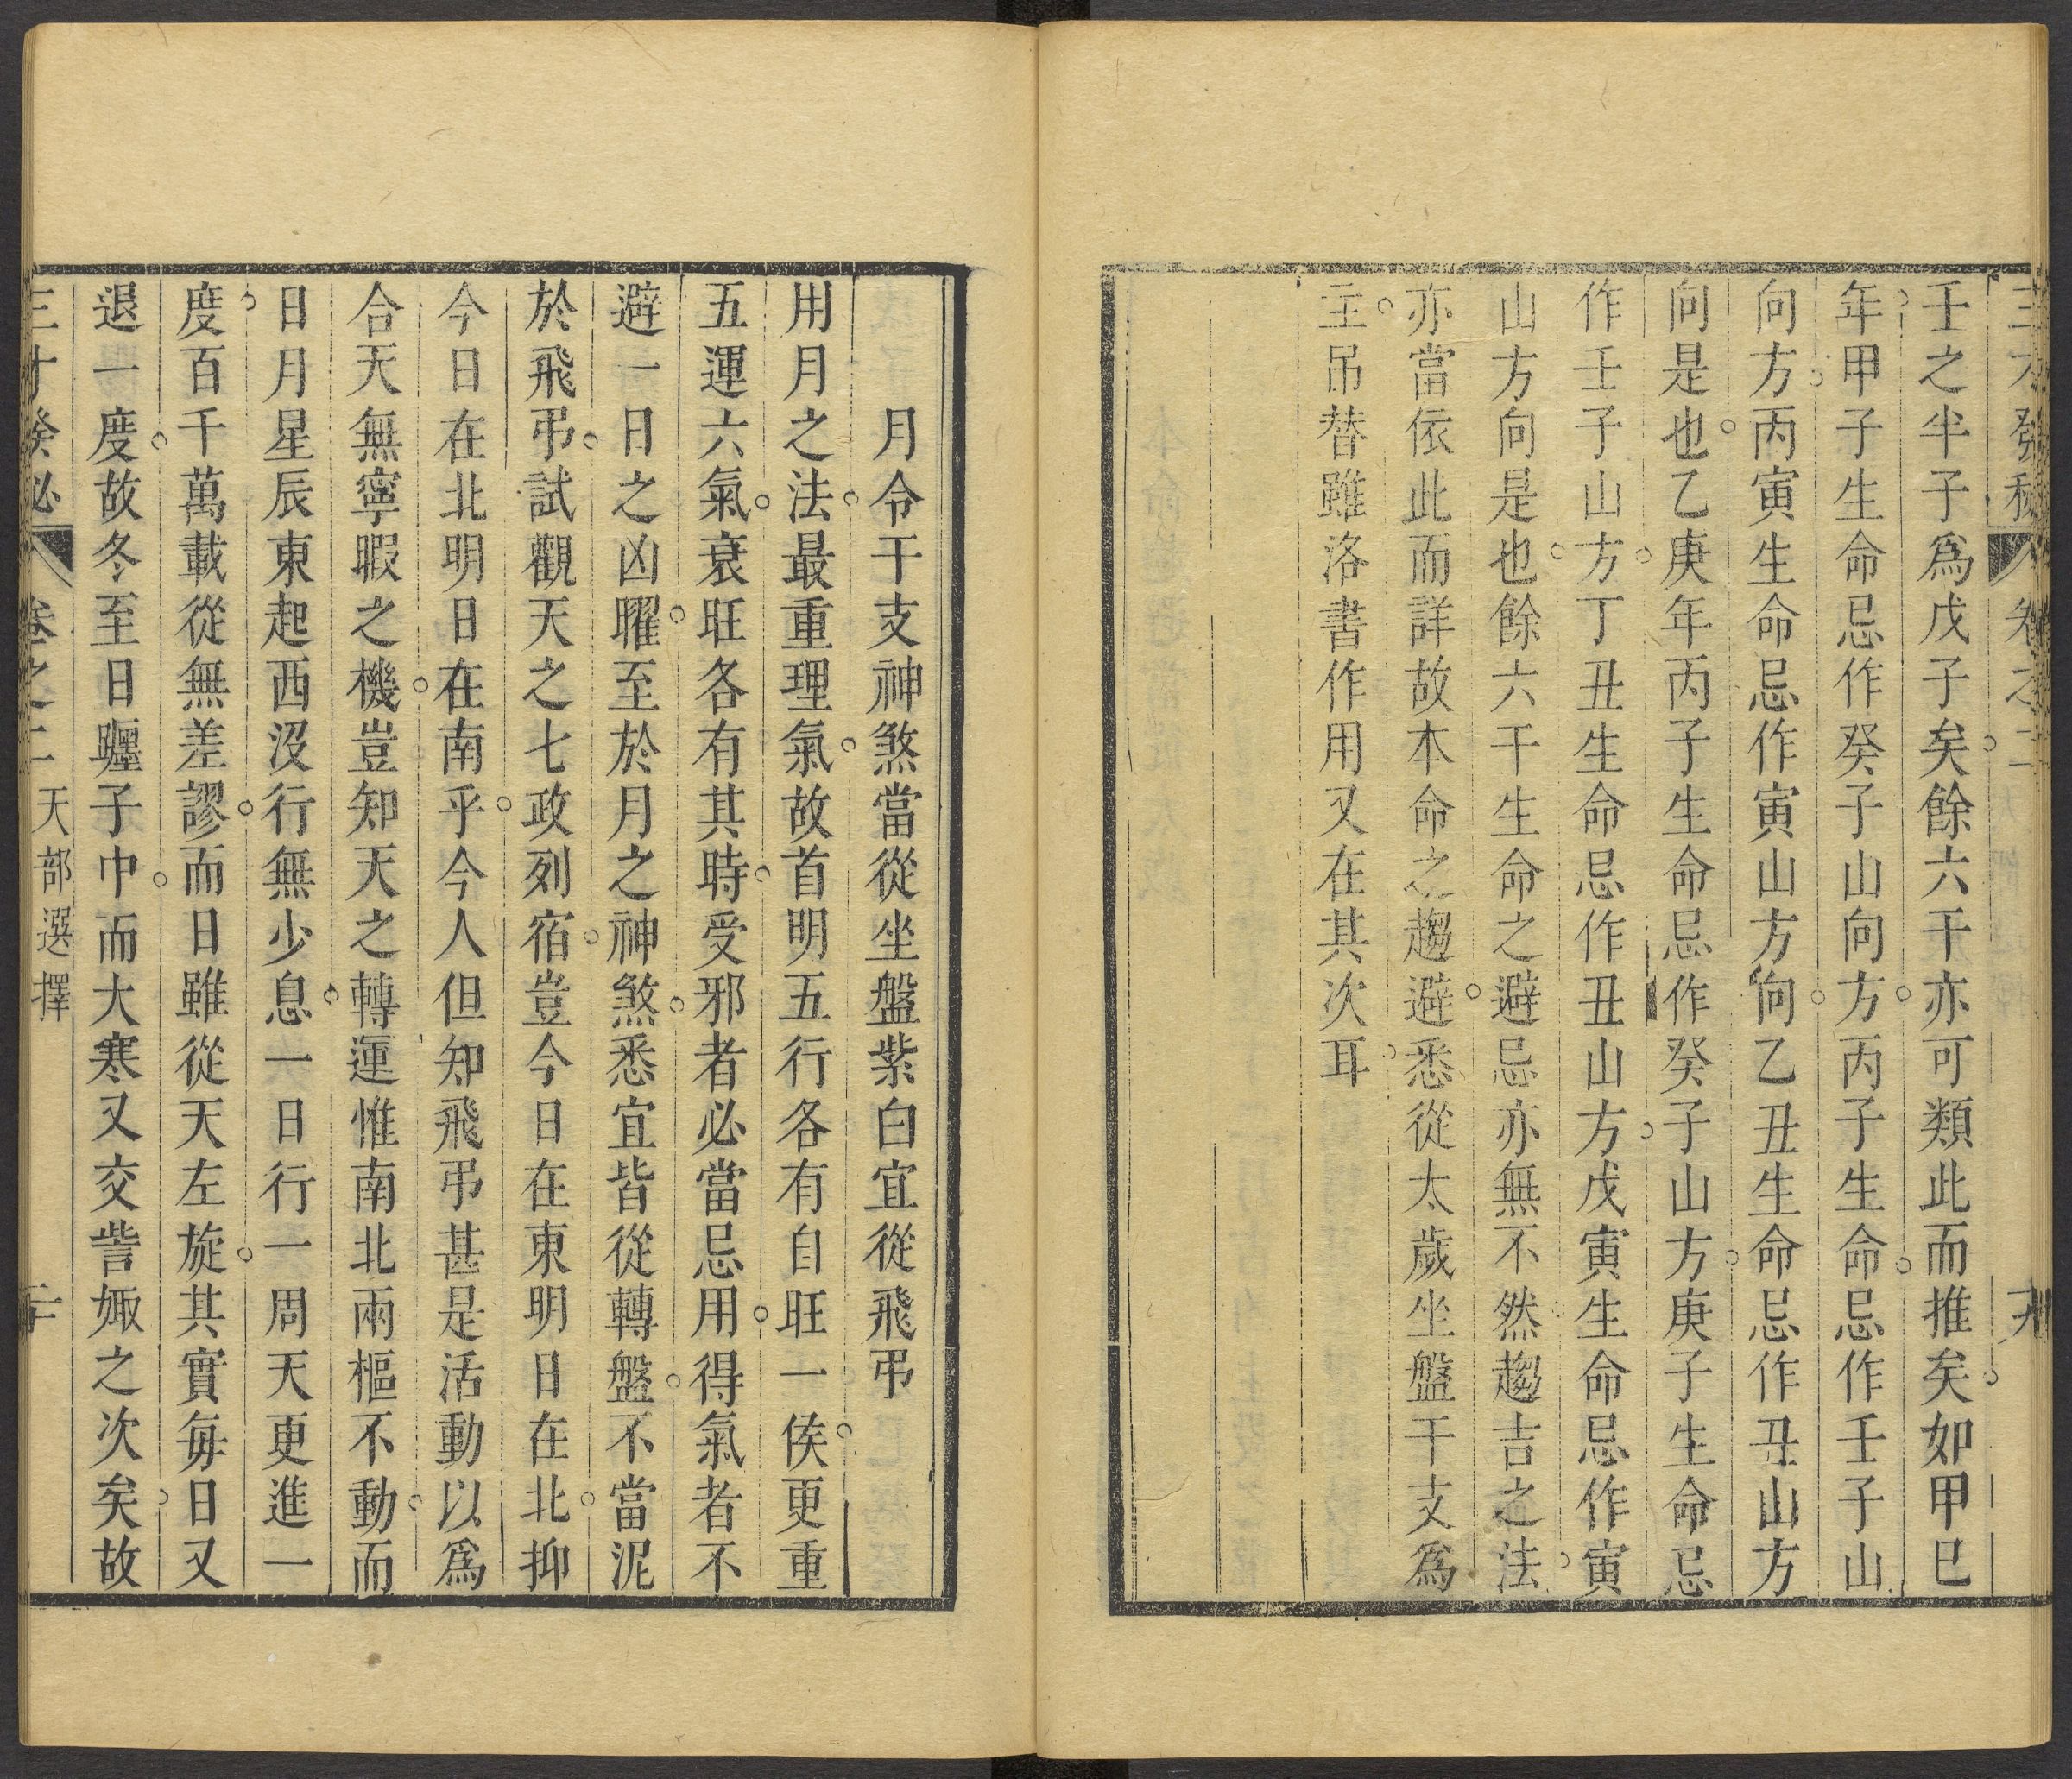 三才發秘　卷之二　十九
壬之半子爲戊子矣餘六干亦可類此而推矣如甲巳
年甲子生命忌作癸子山向方丙子生命忌作壬子山
向方丙寅生命忌作寅山方向乙丑生命忌作丑山方
向是也乙庚年丙子生命忌作癸子山方庚子生命忌
作壬子山方丁丑生命忌作丑山方戊寅生命忌作寅
山方向是也餘六干生命之避忌亦無不然趨吉之法
亦當依此而詳故本命之趨避悉從太歲坐盤干支爲
主吊替雖洛書作用又在其次耳
月令干支神煞當從坐盤紫白宜從飛弔
用月之法最重理氣故首明五行各有自旺一侯更重
五運六氣衰旺各有其時受邪者必當忌用得氣者不
避一日之凶曜至於月之神煞悉宜皆從轉盤不當泥
於飛弔試觀天之七政列宿豈今日在東明日在北抑
今日在北明日在南乎今人但知飛弔甚是活動以爲
合天無寧暇之機豈知天之轉運惟南北兩樞不動而
日月星辰東起西沒行無少息一日行一周天更進一
度百千萬載從無差謬而日雖從天左旋其實每日又
退一度故冬至日躔子中而大寒又交訾娵之次矣故
三才發秘　卷之二　天部選擇　二十